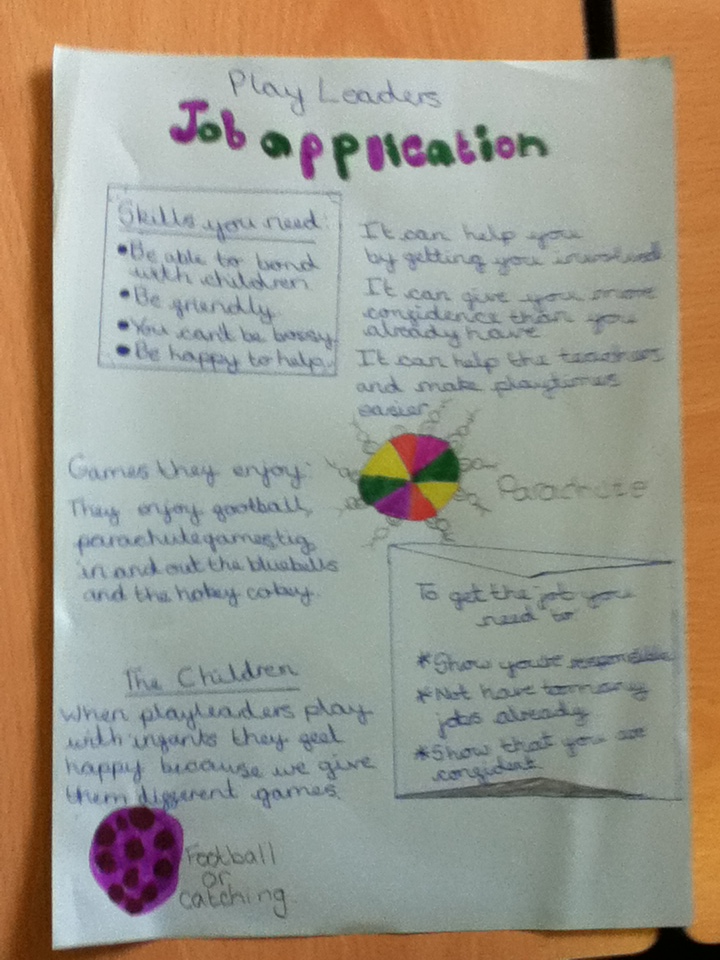 Play Leaders
Job application
Skills you need:
•Be able to bond
with children
•Be friendly
•You can't be bossy
•Be happy to help.
It can help you
by getting you involved
It can give you more
confidence than you
already have
It can help the teachers
and make playtimes
easier
Games they enjoy:
They enjoy football,
parachute games tig,
in and out the bluebells
and the hokey cokey.
Parachute
To get the job you
need to
*Show you're responsible
*Not have to many
jobs already
*Show that you are
confident
The Children
When playleaders play
with infants they feel
happy because we give
them different games.
Football
or
catching